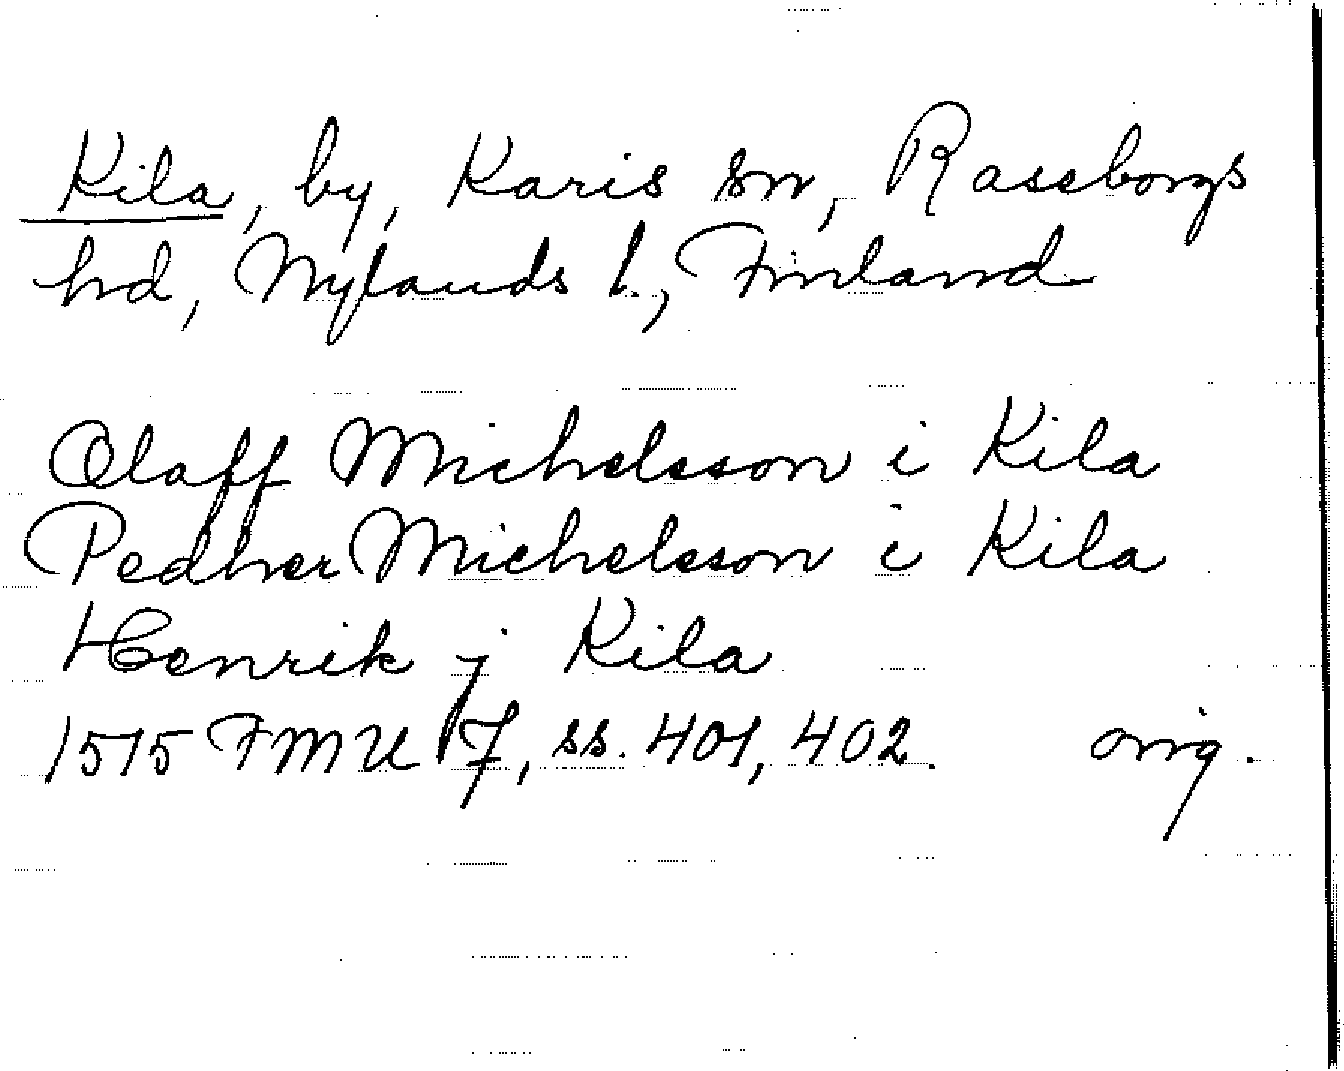 Kila, by, Karis sn, Raseborgs
hd, Nylands l., Finland
Olaff Michelsson i Kila
Pedher Michelsson i Kila
Henrik j Kila
1515 FMU 7, ss. 401, 402. orig.